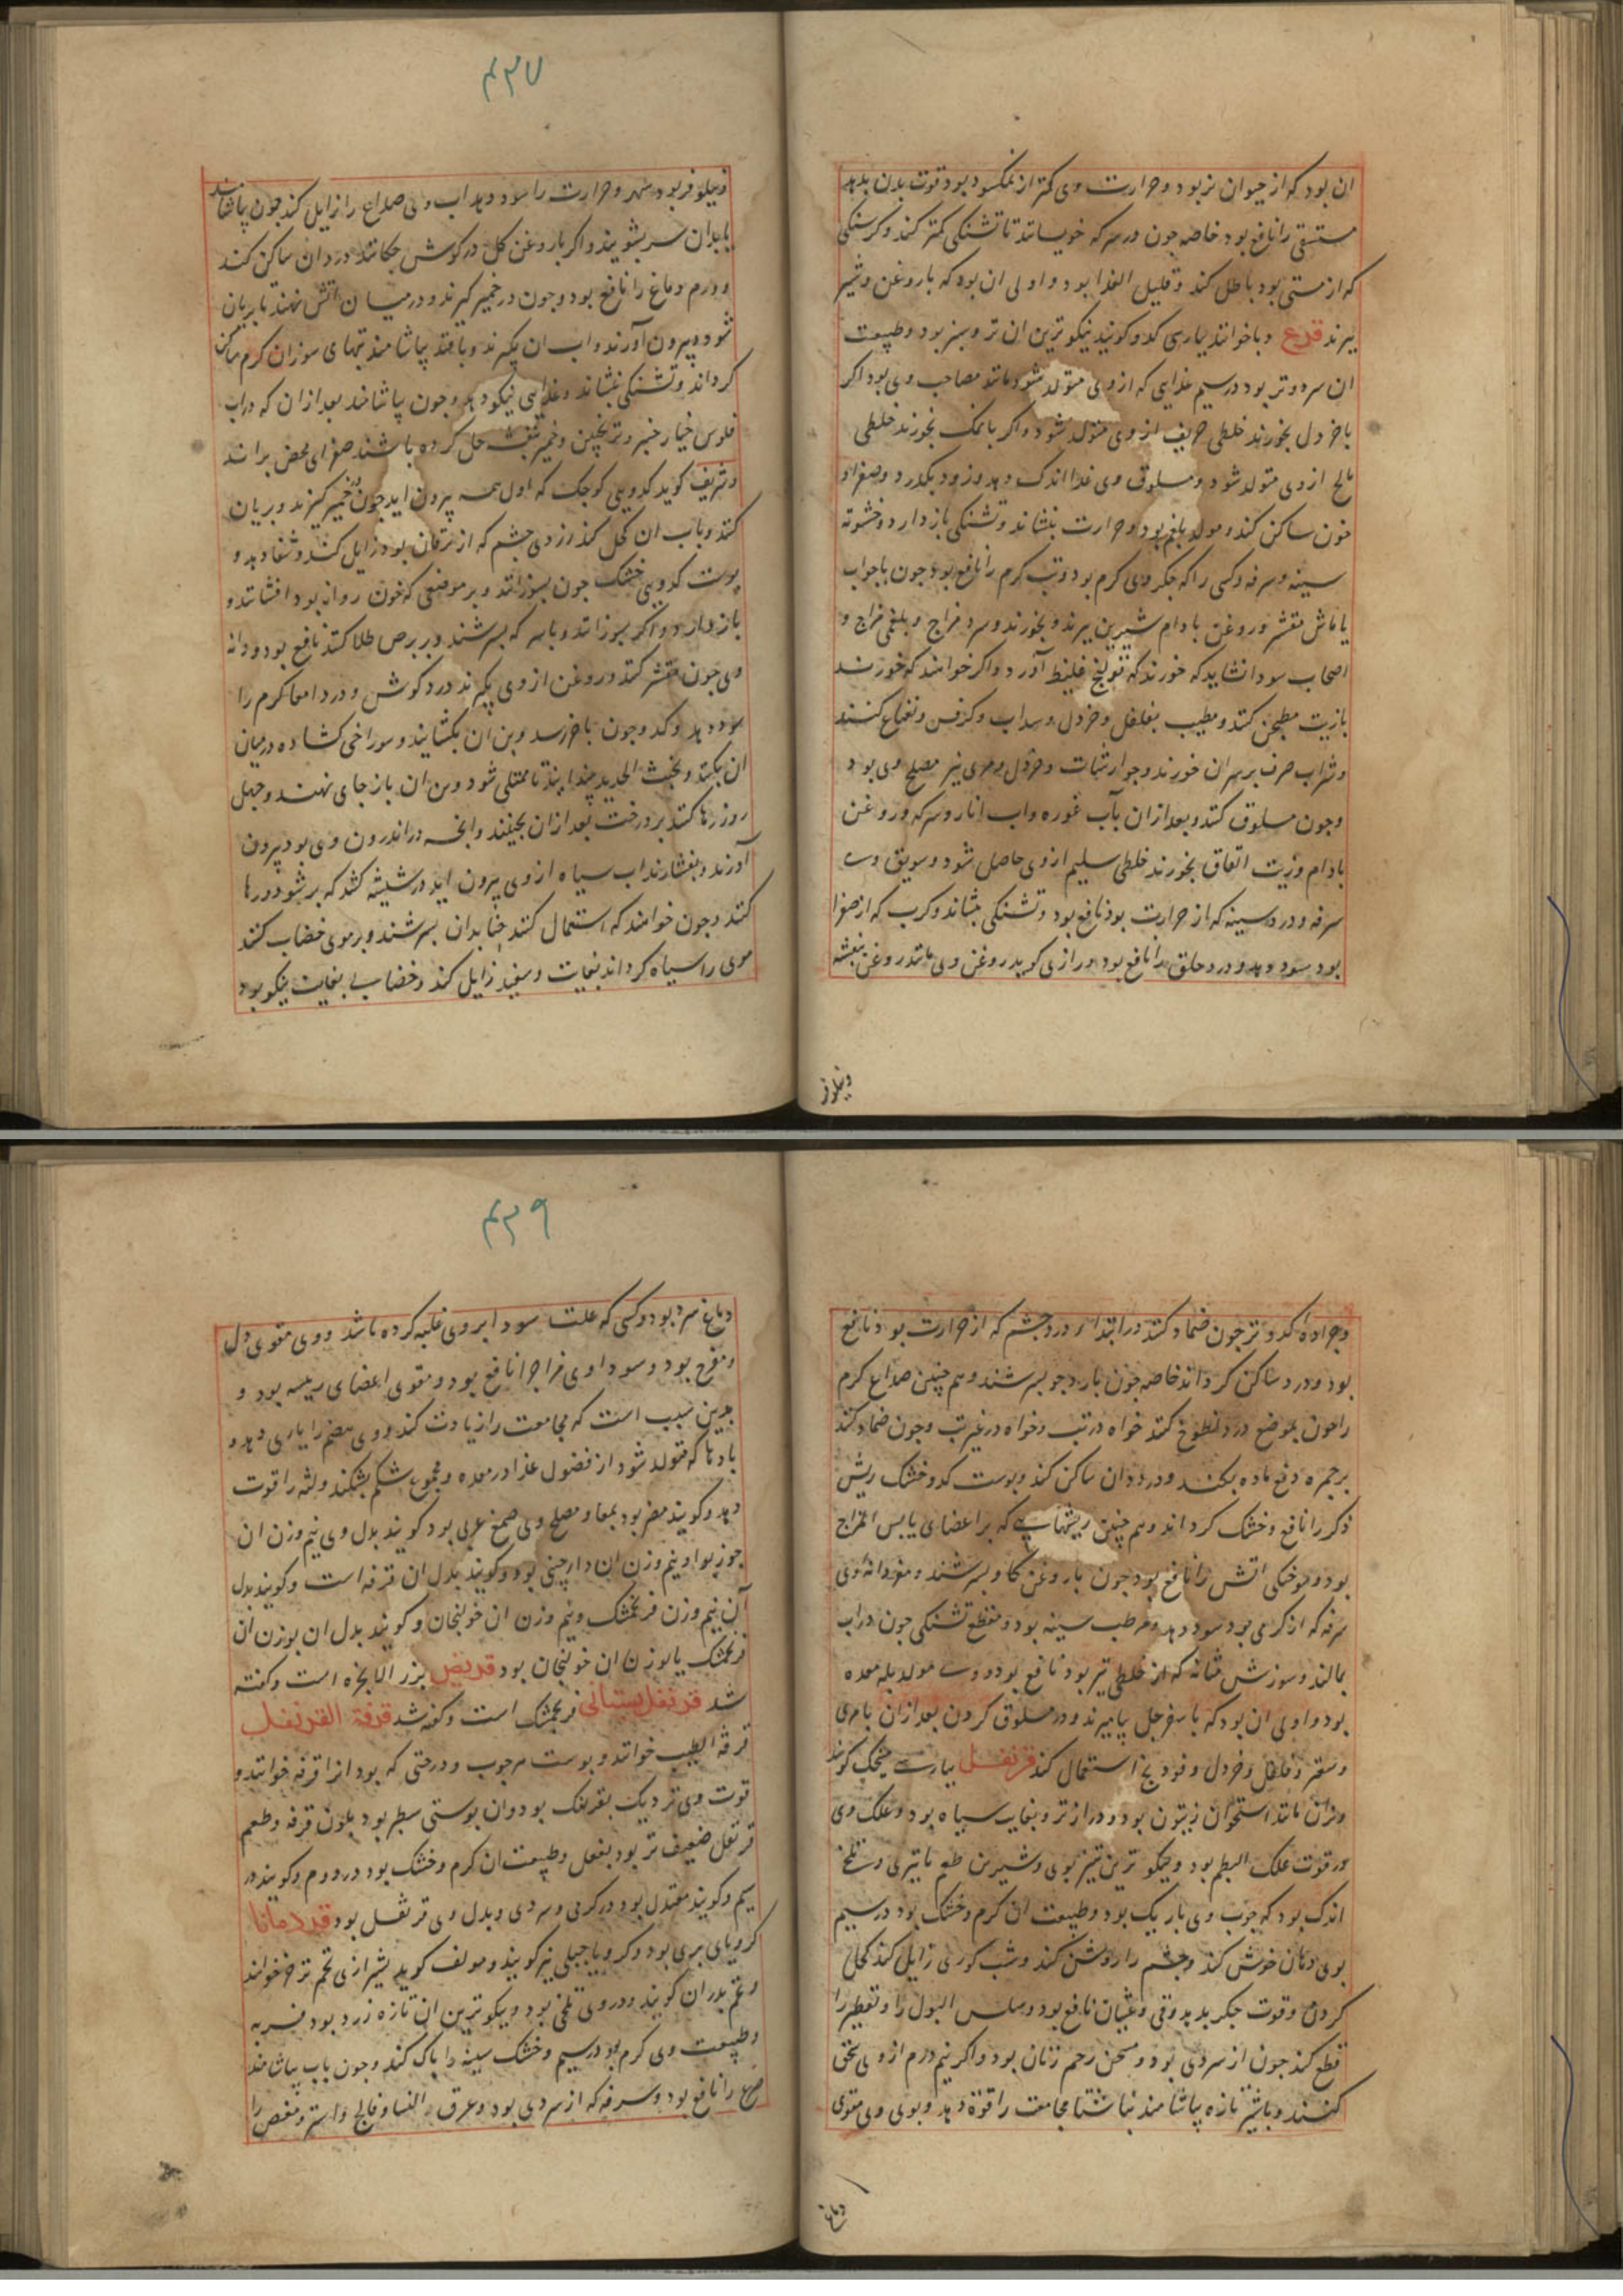 ان بود که از حیوان نر بود و حرارت وی کمتر از نمکسود بود قوت بدن بدهد
مستسقی را نافع بود خاصه چون در سرکه خویسانند تا تشنکی کمتر کند و کرسنکی
که از مستی بود باطل کند و قلیل الغذا بود و اولی ان بود که با روغن و شیر
پزند قرع دبا خوانند بپارسی کدو کویند نیکوترین ان تر و سبز بود و طبیعت
ان سرد و تر بود در سیم غذایی که از وی متولد شود مانند مصاحب وی بود اکر
با خردل بخورند خلطی حریف از وی متولد شود و اکر با نمک بخورند خلطی
مالح از وی متولد شود و مسلوق وی غذا اندک دهد و زود بکذرد و صفرا و
خون ساکن کند و مولد بلغم بود و حرارت بنشاند و تشنکی باز دارد و خشونة
سینه و سرفه و کسی را که جکر وی کرم بود و تب کرم را نافع بود چون با جواب
یا ماش مقشر و روغن بادام شیرین پزند و بخورند و سرد مزاج و بلغمی مزاج و
اصحاب سودا نشاید که خورند که قولنج غلیظ آورد و اکر خواهند که خورند
بازیت مطجن کنند و مطیب بفلفل و خردل و سداب و کرفس و نعناع کنند
و شراب صرف بر سر ان خورند و جوارشات و خردل و مری نیز مصلح وی بود
و چون مسلوق کنند و بعد از ان بآب غوره و اب انار و سرکه و روغن
بادام و زیت انفاق بخورند خلطی سلیم از وی حاصل شود و سویق وی
سرفه و درد سینه که از حرارت بود نافع بود و تشنکی بنشاند و کرب که از صفرا
بود سود دهد و درد حلق را نافع بود و رازی کوید روغن وی مانند روغن بنفشه
ونیلوفر
۴۳۷
ونیلوفر بود سهر و حرارت را سود دهد اب وی صداع را زایل کند چون بیاشامند
یا بدان سر بشویند و اکر با روغن کل در کوش چکانند درد ان ساکن کند
و ورم دماغ را نافع بود و چون در خمیر کیرند و در میان اتش نهند تا بریان
شود و بیرون آورند و اب ان بکیرند و با قند بیاشامند تبهای سوزان کرم ساکن
کرداند و تشنکی بنشاند و غذایی نیکو دهد و چون بیاشامند بعد از ان که در اب
فلوس خیار چنبر و ترنجبین و خمیر بنفشه حل کرده باشند صفرای محض براند
و شریف کوید کدویی کوچک که اول همه بیرون اید چون در خمیر کیرند و بریان
کنند و باب ان کحل کنند زردی چشم که از یرقان بود زایل کند و شفا دهد و
پوست کدوی خشک چون بسوزانند و بر موضعی که خون روان بود افشانند و
باز دارد و اکر بسوزانند و با سرکه بسرشند و بر برص طلا کنند نافع بود و دانه
وی چون مقشر کنند و روغن از وی بکیرند درد کوش و درد امعا کرم را
سود دهد و کدو چون باخر رسد و بن ان بکشایند و سوراخی کشاده در میان
ان بکنند و بخبث الحدید چندا پند تا ممتلی شود و بن ان باز جای نهند و چهل
روز رها کنند بر درخت بعد از ان بچینند و انچه در اندرون وی بود بیرون
آورند و بفشارند اب سیاه از وی بیرون اید در شیشه کنند که بر شود و رها
کنند و چون خواهند که استعمال کنند حنا بدان بسرشند و بر موی خضاب کنند
موی را سیاه کرداند بغایت و سفید زایل کند و خضاب بغایت نیکو بود
و جراده کدو تر چون ضماد کنند در ابتداء درد چشم که از حرارت بود نافع
بود و درد ساکن کرداند خاصه چون با ارد جو بسرشند و هم چنین صداع کرم
را چون بموضع درد لطوخ کنند خواه در تب و خواه در غیر تب و چون ضماد کنند
بر جمره دفع ماده بکند و درد دان ساکن کند و پوست کدو خشک ریش
ذکر را نافع و خشک کرداند و هم چنین ریشهایی که بر اعضای یابس المزاج
بود و سوختکی اتش را نافع بود چون با روغن کاو بسرشند و مغز دانه وی
سرفه که از کرمی بود سود دهد و مرطب سینه بود و مقطع تشنکی چون در اب
بمالند و سوزش مثانه که از خلطی تیز بود نافع بود و وی مولد بله معده
بود و اولی ان بود که با سفرجل بیامیزند و در مسلوق کردن بعد از ان با مری
و سعتر و فلفل و خردل و فودنج استعمال کنند قرنفل بپارسی میخک کویند
و نران مانند استخوان زیتون بود و درازتر و بغایت سیاه بود و علک وی
در قوت علک البطم بود و نیکوترین تیز بوی و شیرین طعم با تیزی و تلخی
اندک بود که چوب وی باریک بود و طبیعت ان کرم و خشک بود در سیم
بوی دهان خوش کند و چشم را روشن کند و شب کوری زایل کند کحل
کردن و قوت جکر بدهد و قی و غثیان نافع بود و سلس البول را و تقطیر را
قطع کند چون از سردی بود و مسخن رحم زنان بود و اکر نیم درم از وی سحق
کنند و با شیر تازه بیاشامند بناشتا مجامعت را قوة دهد و بوی وی مقوی
دماغ
۴۳۹
دماغ سرد بود و کسی که علت سودا بر وی غلبه کرده باشد و وی مقوی دل
و مفرح بود و سوداوی مزاج را نافع بود و مقوی اعضای رییسه بود و
بدین سبب است که مجامعت را زیادت کند و وی هضم را یاری دهد و
بادها که متولد شود از فضول غذا در معده و مجموع شکم بشکند و لثه را قوت
دهد و کویند مضر بود بمعا و مصلح وی صمغ عربی بود کویند بدل وی نیم وزن ان
جوزبوا و نیم وزن ان دارچینی بود و کویند بدل ان قرفه است و کویند بدل
آن نیم وزن فرنجمشک و نیم وزن ان خولنجان و کویند بدل ان بوزن ان
فرنجمشک یا بوزن ان خولنجان بود قریص بزر الانجره است و کفته
شد قرنفل بستانی فرنجمشک است و کفته شد قرفة القرنفل
قرفه الطیب خوانند و پوست سرچوب و درختی که بود انرا قرفه خوانند و
قوت وی نزدیک بقرنفل بود و ان پوستی سطبر بود بلون قرفه و طعم
قرنفل ضعیف تر بود بفعل و طبیعت ان کرم و خشک بود در دوم و کویند در
سیم و کویند معتدل بود در کرمی و سردی و بدل وی قرنفل بود قردمانا
کرویای بری بود و کرویا جبلی نیز کویند و مولف کوید بشیرازی تخم ترخ خوانند
و تخم بدران کویند و در وی تلخی بود و نیکوترین ان تازه زرد بود فربه
و طبیعت وی کرم بود در سیم و خشک سینه را پاک کند و چون باب بیاشامند
صرع را نافع بود و سرفه که از سردی بود و عرق النسا و فالج و مغص را